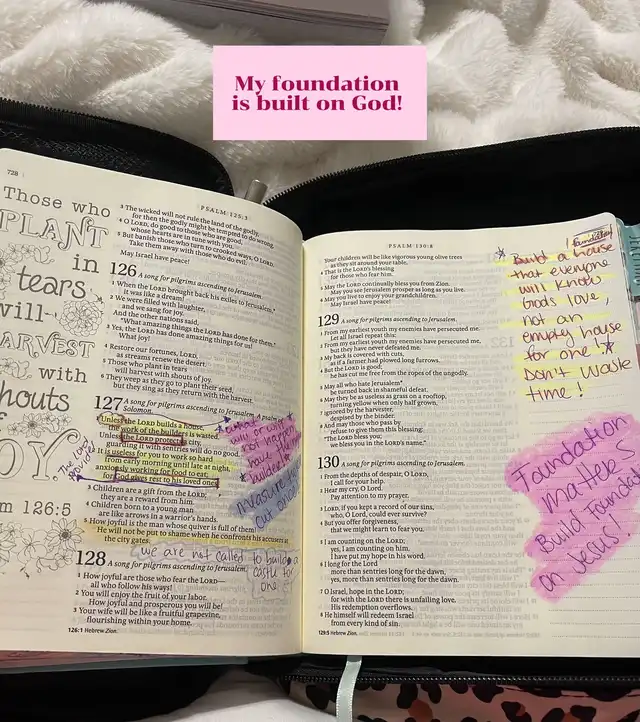 My foundation
is built on God!
728
Those who
PLANT
in
tears
will
HARVEST
with
shouts
JOY.
m 126:5
PSALM 125:3
3 The wicked will not rule the land of the godly,
for then the godly might be tempted to do wrong.
4 O LORD, do good to those who are good,
whose hearts are in tune with you.
5 But banish those who turn to crooked ways, O LORD.
Take them away with those who do evil.
May Israel have peace!
126 A song for pilgrims ascending to Jerusalem.
1 When the LORD brought back his exiles to Jerusalem,*
it was like a dream!
2 We were filled with laughter,
and we sang for joy.
And the other nations said,
"What amazing things the LORD has done for them."
3 Yes, the LORD has done amazing things for us!
What joy!
4 Restore our fortunes, LORD,
as streams renew the desert.
5 Those who plant in tears
will harvest with shouts of joy.
6 They weep as they go to plant their seed,
but they sing as they return with the harvest.
127 A song for pilgrims ascending to Jerusalem. A psalm of
Solomon.
1 Unless the LORD builds a house,
the work of the builders is wasted.
Unless the LORD protects a city,
guarding it with sentries will do no good.
2 It is useless for you to work so hard
from early morning until late at night,
anxiously working for food to eat;
for God gives rest to his loved ones.
3 Children are a gift from the LORD;
they are a reward from him.
4 Children born to a young man
are like arrows in a warrior's hands.
5 How joyful is the man whose quiver is full of them!
He will not be put to shame when he confronts his accusers at
the city gates.
we are not called to build a
castle for
one
128 A song for pilgrims ascending to Jerusalem.
1 How joyful are those who fear the LORD—
all who follow his ways!
2 You will enjoy the fruit of your labor.
How joyful and prosperous you will be!
3 Your wife will be like a fruitful grapevine,
flourishing within your home.
126:1 Hebrew Zion.
PSALM 130:8
Your children will be like vigorous young olive trees
as they sit around your table.
4 That is the LORD's blessing
for those who fear him.
5 May the LORD continually bless you from Zion.
May you see Jerusalem prosper as long as you live.
6 May you live to enjoy your grandchildren.
May Israel have peace!
129 A song for pilgrims ascending to Jerusalem.
1 From my earliest youth my enemies have persecuted me.
Let all Israel repeat this:
2 From my earliest youth my enemies have persecuted me,
but they have never defeated me.
3 My back is covered with cuts,
as if a farmer had plowed long furrows.
4 But the LORD is good;
he has cut me free from the ropes of the ungodly.
5 May all who hate Jerusalem*
be turned back in shameful defeat.
6 May they be as useless as grass on a rooftop,
turning yellow when only half grown,
7 ignored by the harvester,
despised by the binder.
8 And may those who pass by
refuse to give them this blessing:
"The LORD bless you;
we bless you in the LORD's name."
130 A song for pilgrims ascending to Jerusalem.
1 From the depths of despair, O LORD,
I call for your help.
2 Hear my cry, O Lord.
Pay attention to my prayer.
3 LORD, if you kept a record of our sins,
who, O Lord, could ever survive?
4 But you offer forgiveness,
that we might learn to fear you.
5 I am counting on the LORD;
yes, I am counting on him.
I have put my hope in his word.
6 I long for the Lord
more than sentries long for the dawn,
yes, more than sentries long for the dawn.
7 O Israel, hope in the LORD;
for with the LORD there is unfailing love.
His redemption overflows.
8 He himself will redeem Israel
from every kind of sin.
129:5 Hebrew Zion.
Build a house
that everyone
will know
Gods love
not an
empty house
for one!
Don't waste
time!
Foundation
matter
Build foundation
on Jesus!